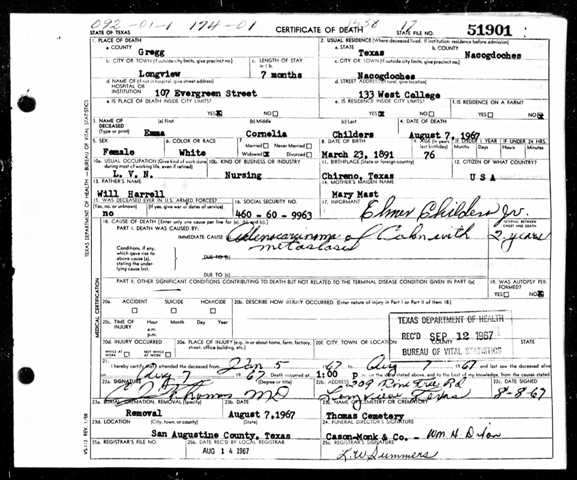 092-01-1 174-01 1538 17
STATE OF TEXAS CERTIFICATE OF DEATH STATE FILE NO. 51901
1. PLACE OF DEATH 2. USUAL RESIDENCE (Where deceased lived. If institution: residence before admission)
a. COUNTY a. STATE b. COUNTY
Gregg Texas Nacogdoches
b. CITY OR TOWN (If outside city limits, give precinct no.) c. LENGTH OF STAY in 1 b. c. CITY OR TOWN (If outside city limits, give precinct no.)
Longview 7 months Nacogdoches
d. NAME OF (If not in hospital, give street address) HOSPITAL OR INSTITUTION d. STREET ADDRESS (If rural, give location)
107 Evergreen Street 133 West College
e. IS PLACE OF DEATH INSIDE CITY LIMITS? e. IS RESIDENCE INSIDE CITY LIMITS? f. IS RESIDENCE ON A FARM?
YES NO YES NO YES NO
3. NAME OF DECEASED (Type or print) (a) First (b) Middle (c) Last 4. DATE OF DEATH
Emma Cornelia Childers August 7, 1967
5. SEX 6. COLOR OR RACE 7. Married Never Married 8. DATE OF BIRTH 9. AGE (In years last birthday) IF UNDER 1 YEAR IF UNDER 24 HRS.
Months Days Hours Minutes
Female White Widowed Divorced March 23, 1891 76
10a. USUAL OCCUPATION (Give kind of work done during most of working life, even if retired) 10b. KIND OF BUSINESS OR INDUSTRY 11. BIRTHPLACE (State or foreign country) 12. CITIZEN OF WHAT COUNTRY?
L. V. N. Nursing Chireno, Texas U S A
13. FATHER'S NAME 14. MOTHER'S MAIDEN NAME
Will Harrell Mary Mast
15. WAS DECEASED EVER IN U.S. ARMED FORCES? 16. SOCIAL SECURITY NO. 17. INFORMANT
(Yes, no, or unknown) (If yes, give war or dates of service)
no 460-60-9963 Elmer Childers Jr.
18. CAUSE OF DEATH [Enter only one cause per line for (a), (b), and (c).] INTERVAL BETWEEN ONSET AND DEATH
PART I. DEATH WAS CAUSED BY:
IMMEDIATE CAUSE (a) Adenocarcinoma of Colon with 2 years
metastasis
Conditions, if any, which gave rise to above cause (a), stating the underlying cause last. DUE TO (b)
DUE TO (c)
PART II. OTHER SIGNIFICANT CONDITIONS CONTRIBUTING TO DEATH BUT NOT RELATED TO THE TERMINAL DISEASE CONDITION GIVEN IN PART I(a) 19. WAS AUTOPSY PERFORMED?
YES NO
20a. ACCIDENT SUICIDE HOMICIDE 20b. DESCRIBE HOW INJURY OCCURRED. (Enter nature of injury in Part I or Part II of item 18.)
20c. TIME OF INJURY Hour Month Day Year
a.m.
p.m.
TEXAS DEPARTMENT OF HEALTH
REC'D SEP 12 1967
BUREAU OF VITAL STATISTICS
20d. INJURY OCCURRED 20e. PLACE OF INJURY (e.g. in or about home, farm, factory, street, office building, etc.) 20f. CITY, TOWN, OR LOCATION COUNTY STATE
WHILE AT WORK NOT WHILE AT WORK
21. I hereby certify that I attended the deceased from Jan 5 1967 to Aug 7 1967 and last saw the deceased alive
on Aug 7 1967. Death occurred at 1:00 p m. on the date stated above, and to the best of my knowledge, from the causes stated.
22a. SIGNATURE (Degree or title) 22b. ADDRESS 22c. DATE SIGNED
Thomas MD 709 Pine Tree Rd Longview Texas 8-8-67
23a. BURIAL, CREMATION, REMOVAL (Specify) 23b. DATE 23c. NAME OF CEMETERY OR CREMATORY
Removal August 7, 1967 Thomas Cemetery
23d. LOCATION (City, town, or county) (State) 24. FUNERAL DIRECTOR'S SIGNATURE
San Augustine County, Texas Cason-Monk & Co. - Wm H Dixon
25a. REGISTRAR'S FILE NO. 25b. DATE REC'D BY LOCAL REGISTRAR 25c. REGISTRAR'S SIGNATURE
AUG 14 1967 L. W. Summers
TEXAS DEPARTMENT OF HEALTH — BUREAU OF VITAL STATISTICS
MEDICAL CERTIFICATION